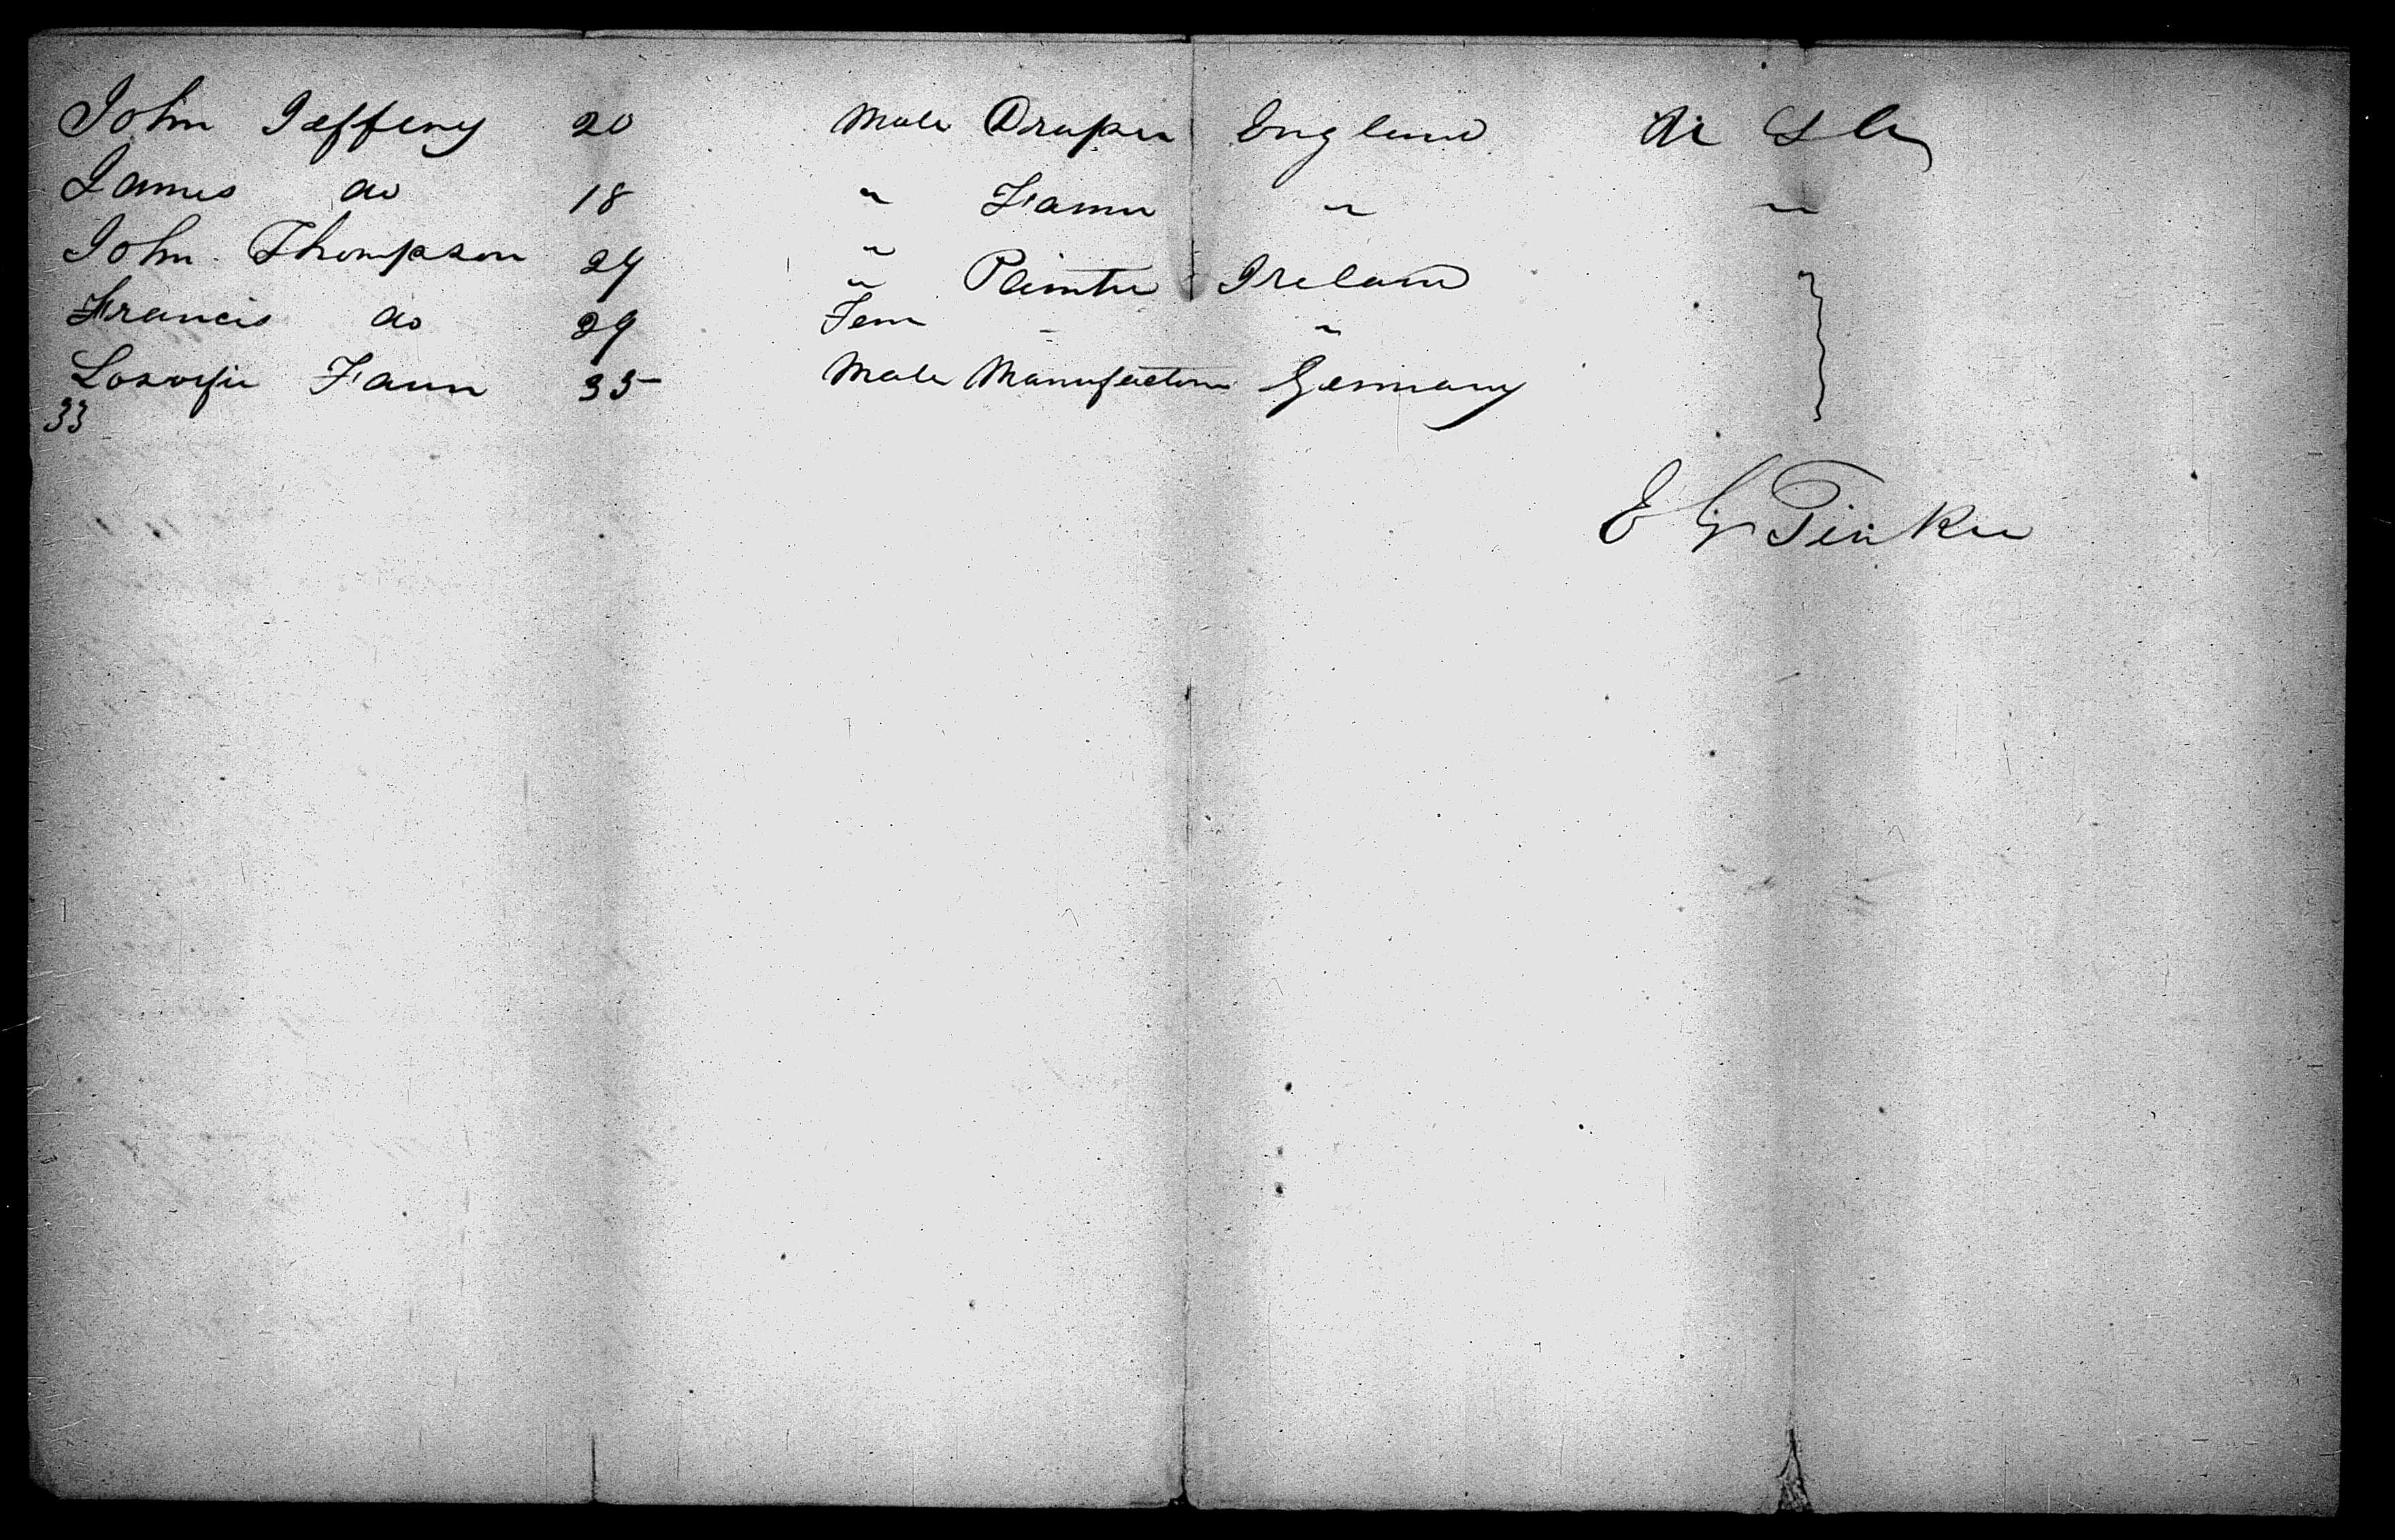 John Jeffery 20 Male Draper England
James do 18 " Farmer " "
John Thompson 24 " " Painter Ireland
Francis do 29 Fem - "
Faun 35 Male Manufacturer Germany
33
E G Tinker